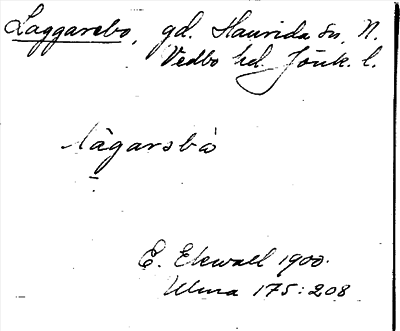 Laggarebo, gd. Haurida sn, N.
Vedbo hd. Jönk. l.
làgarəbò
E. Ekwall 1900.
Ulma 175:208